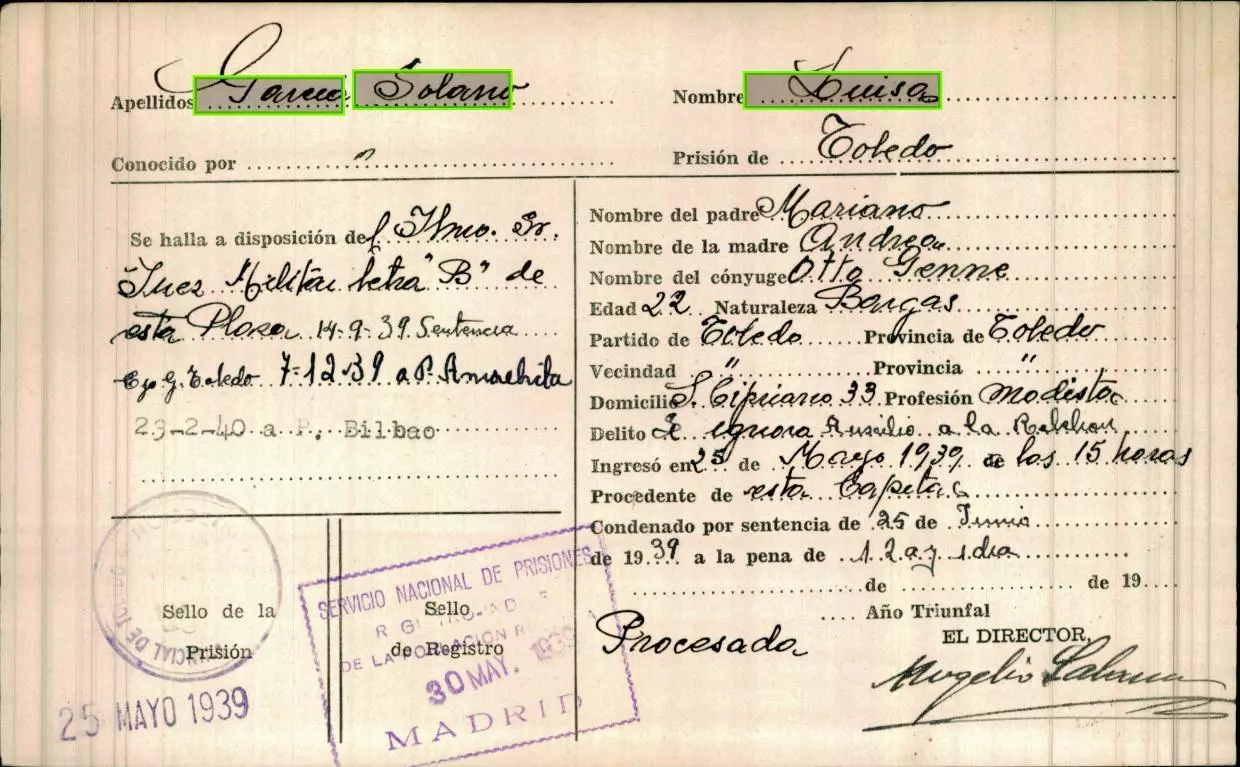 Apellidos García Solano
Nombre Luisa
Conocido por "
Prisión de Toledo
Se halla a disposición del Ilmo. Sr.
Juez Militar letra "B" de
esta Plaza 14-9-39 Sentencia
G. Toledo 7-12-39 a P. Amorebieta
23-2-40 a P. Bilbao
Nombre del padre Mariano
Nombre de la madre Andrea
Nombre del cónyuge Otto Genne
Edad 22 Naturaleza Bargas
Partido de Toledo Provincia de Toledo
Vecindad " Provincia "
Domicilio S. Cipriano 33 Profesión Modista
Delito Se ignora Auxilio a la Rebelion
Ingresó en 25 de Mayo 1939 a las 15 horas
Procedente de esta Capital
Condenado por sentencia de 25 de Junio
de 1939 a la pena de 12 a y 1 dia
de de 19
Año Triunfal
EL DIRECTOR,
Procesada
Sello de la
Prisión
25 MAYO 1939
Sello
de Registro
SERVICIO NACIONAL DE PRISIONES
DE LA POBLACION
30 MAY. 1939
MADRID